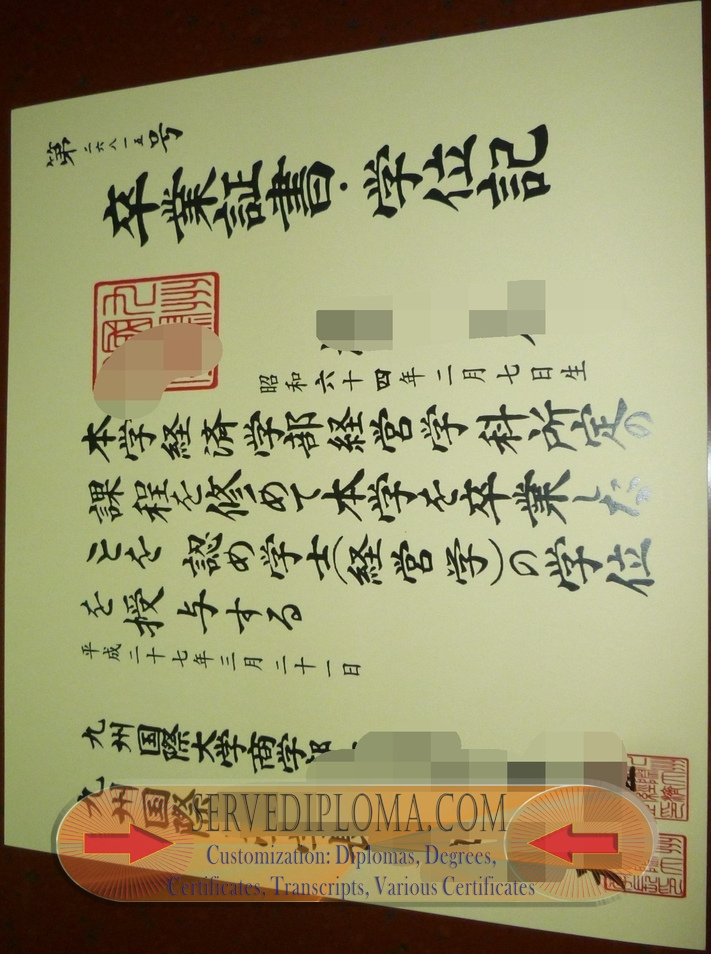 第二六八一五号
卒業証書・学位記
昭和六十四年二月七日生
本学経済学部経営学科所定の
課程を修めて本学を卒業した
ことを認め学士(経営学)の学位
を授与する
平成二十七年三月二十一日
九州国際大学商学
九州国際
SERVEDIPLOMA.COM
Customization: Diplomas, Degrees,
Certificates, Transcripts, Various Certificates